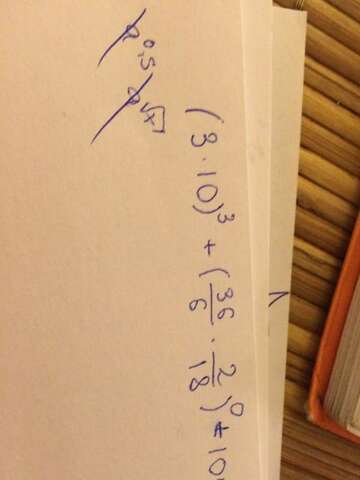 a^0,5 a^√x
(3 · 10)^3 + (36/6 · 2/18)^0 + 10